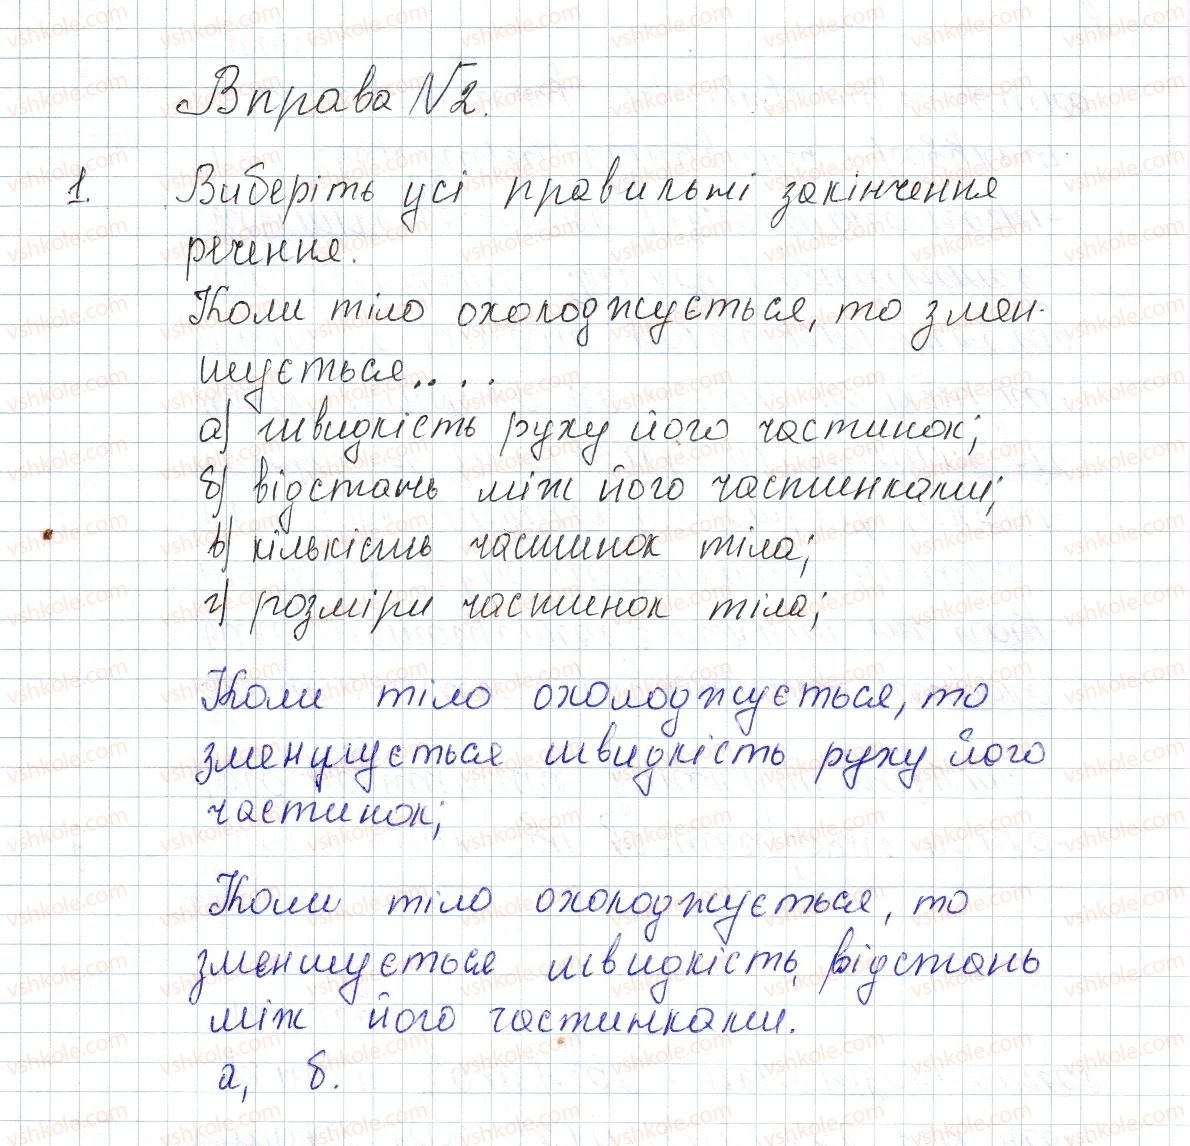 Вправа №2.
1. Виберіть усі правильні закінчення
речення.
Коли тіло охолоджується, то змен-
шується....
а) швидкість руху його частинок;
б) відстань між його частинками;
в) кількість частинок тіла;
г) розміри частинок тіла;
Коли тіло охолоджується, то
зменшується швидкість руху його
частинок;
Коли тіло охолоджується, то
зменшується швидкість, відстань
між його частинками.
а, б.